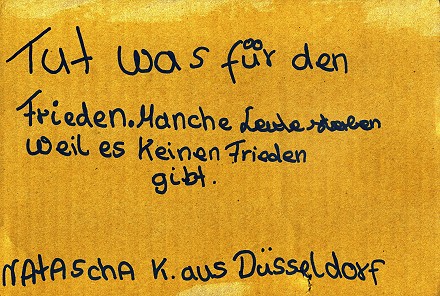 Tut was für den
Frieden. Manche Leute sterben
weil es Keinen Frieden
gibt.
NATAScHA K. aus Düsseldorf